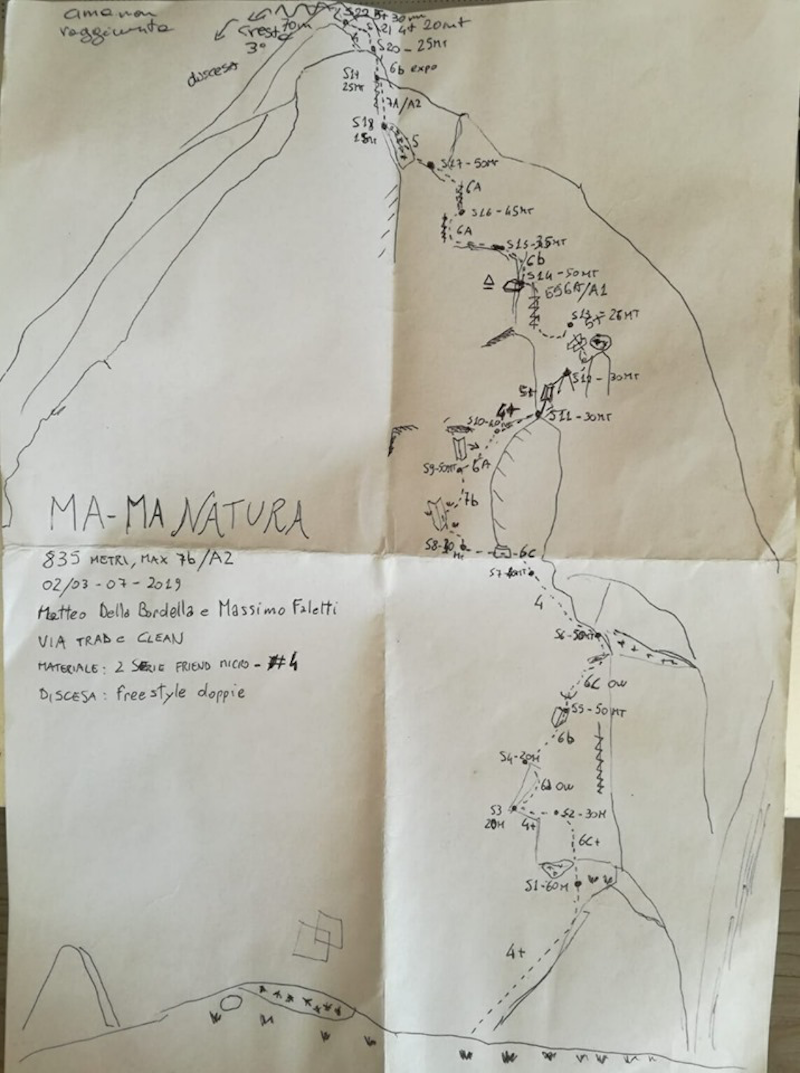 cima non
raggiunta
cresta 70m
3°
discesa
S22 5+ 30m
S21 4+ 20mt
S20 - 25MT
6b expo
S19
25MT
7A/A2
S18
15Mt
5
S17 - 50MT
6A
S16 - 45MT
6A
S15 - 35MT
6b
S14 - 50MT
6A/A1
S13 - 25MT
5+
6
S12 - 30MT
5+
S11 - 30MT
4+
S10
S9 - 50MT
6A
7b
S8 - 30
Mt
6C
S7
4
S6 - 50MT
6C OW
S5 - 50MT
6b
S4 - 20M
OW
S3
20M
S2 - 30M
4+
6C+
S1 - 60M
4+
MA-MA NATURA
835 METRI, MAX 7b/A2
02/03 - 07 - 2019
Matteo Della Bordella e Massimo Faletti
VIA TRAD e CLEAN
MATERIALE: 2 SERIE FRIEND MICRO - #4
DISCESA: freestyle doppie